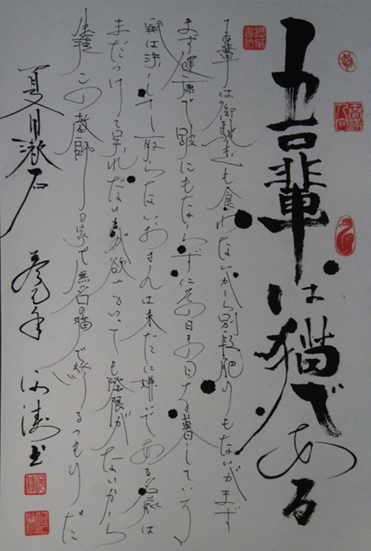 吾輩は猫である
吾輩は御馳走も食わないから別段肥りもしないがまず
まず健康で跛にもならずに其日其日を暮している
鼠は決して取らないおさんは未だに嫌いである名前は
まだつけて呉れないが欲をいっても際限がないから
生涯この教師の家で無名の猫で終るつもりだ
夏目漱石
年
书